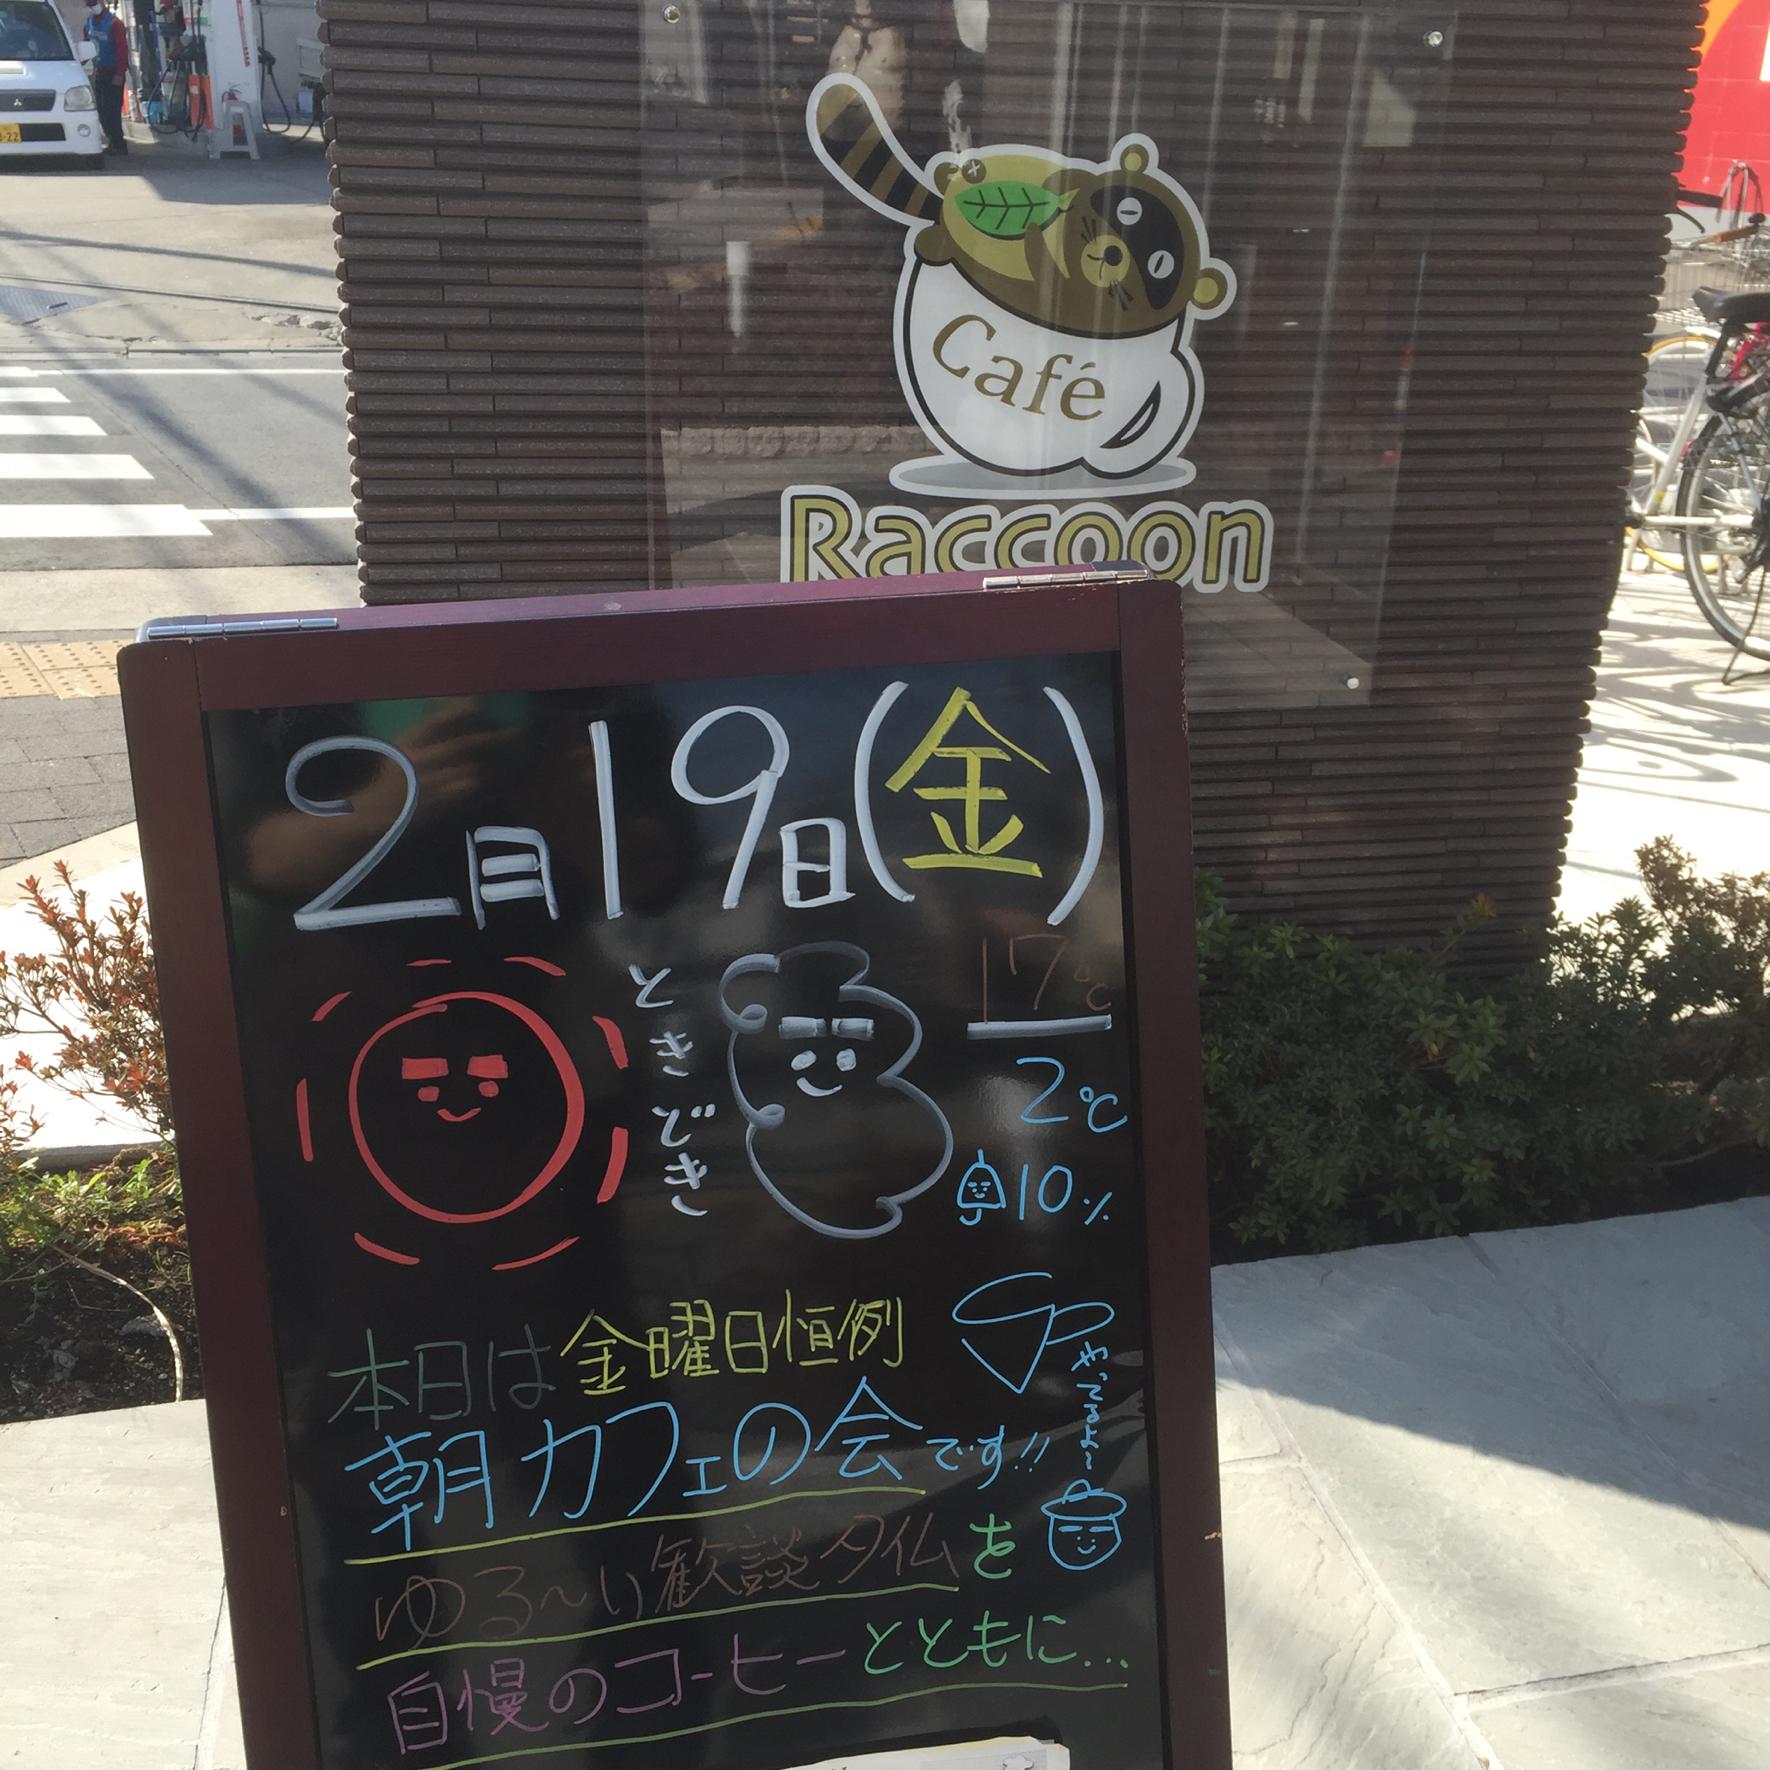 Café
Raccoon
2月19日(金)
ときどき
17℃
2℃
10%
本日は金曜日恒例
朝カフェの会です!!
やってるよ〜
ゆる〜い歓談タイムを
自慢のコーヒーとともに...